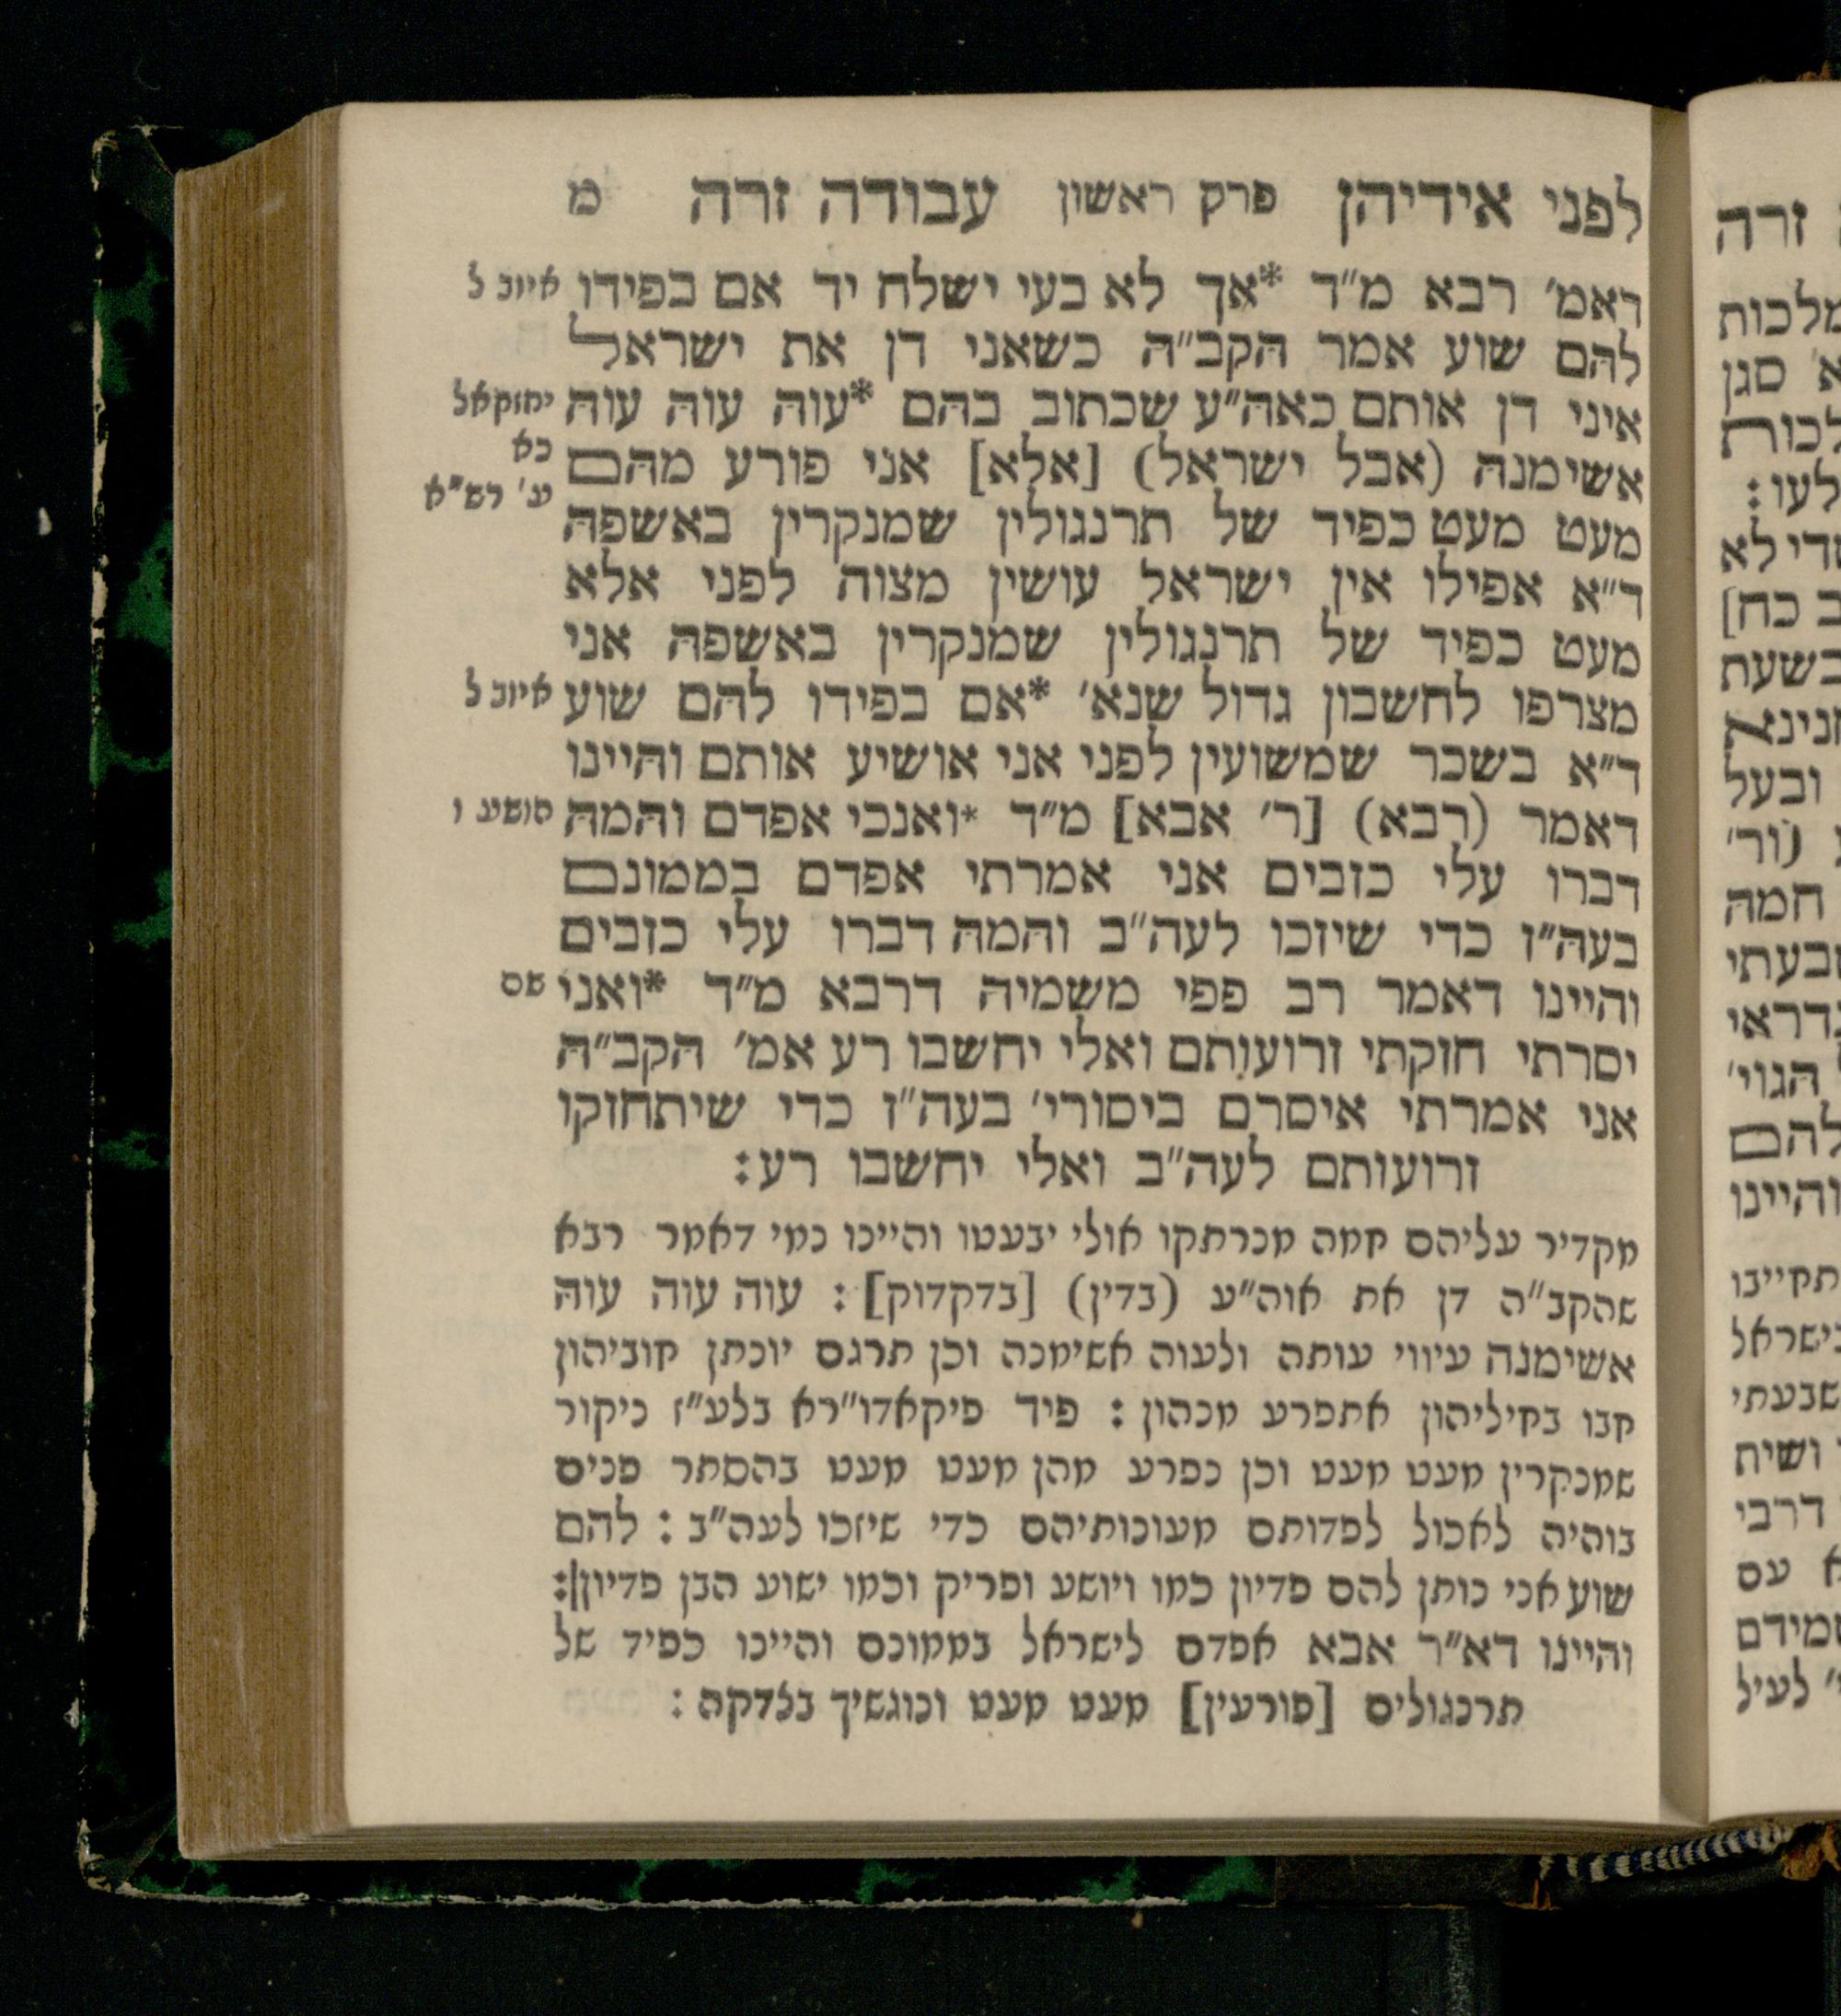 לפני אידיהן פרק ראשון עבודה זרה מ
דאמ׳ רבא מ״ד *אך לא בעי ישלח יד אם בפידו
איוב ל
להם שוע אמר הקב״ה כשאני דן את ישראל
איני דן אותם כאה״ע שכתוב בהם *עוה עוה עוה
יחזקאל
כא
אשימנה (אבל ישראל) [אלא] אני פורע מהם
ע׳ רש״א
מעט מעט כפיד של תרנגולין שמנקרין באשפה
ד״א אפילו אין ישראל עושין מצוה לפני אלא
מעט כפיד של תרנגולין שמנקרין באשפה אני
מצרפו לחשבון גדול שנא׳ *אם בפידו להם שוע
איוב ל
ד״א בשכר שמשועין לפני אני אושיע אותם והיינו
דאמר (רבא) [ר׳ אבא] מ״ד *ואנכי אפדם והמה
הושע ז
דברו עלי כזבים אני אמרתי אפדם בממונם
בעה״ז כדי שיזכו לעה״ב והמה דברו עלי כזבים
והיינו דאמר רב פפי משמיה דרבא מ״ד *ואני
שם
יסרתי חזקתי זרועותם ואלי יחשבו רע אמ׳ הקב״ה
אני אמרתי איסרם ביסורי׳ בעה״ז כדי שיתחזקו
זרועותם לעה״ב ואלי יחשבו רע:
מקדיר עליהם חמה מנרתקו אולי יבעטו והיינו נמי דאמר רבא
שהקב״ה דן את אוה״ע (בדין) [בדקדוק]: עוה עוה עוה
אשימנה עיווי עותה ולעוה אשימנה וכן תרגם יונתן חוביהון
חבו בחיליהון אתפרע מנהון: פיד פיקאדו״רא בלע״ז ניקור
שמנקרין מעט מעט וכן נפרע מהן מעט מעט בהסתר פנים
בוהיה לאכול לפדותם מעונותיהם כדי שיזכו לעה״ב: להם
שוע אני נותן להם פדיון כמו ויושע ופריק וכמו ישוע הבן פדיון]:
והיינו דא״ר אבא אפדם לישראל בממונם והיינו כפיד של
תרנגולים [פורעין] מעט מעט ונוגשיך בצדקה: